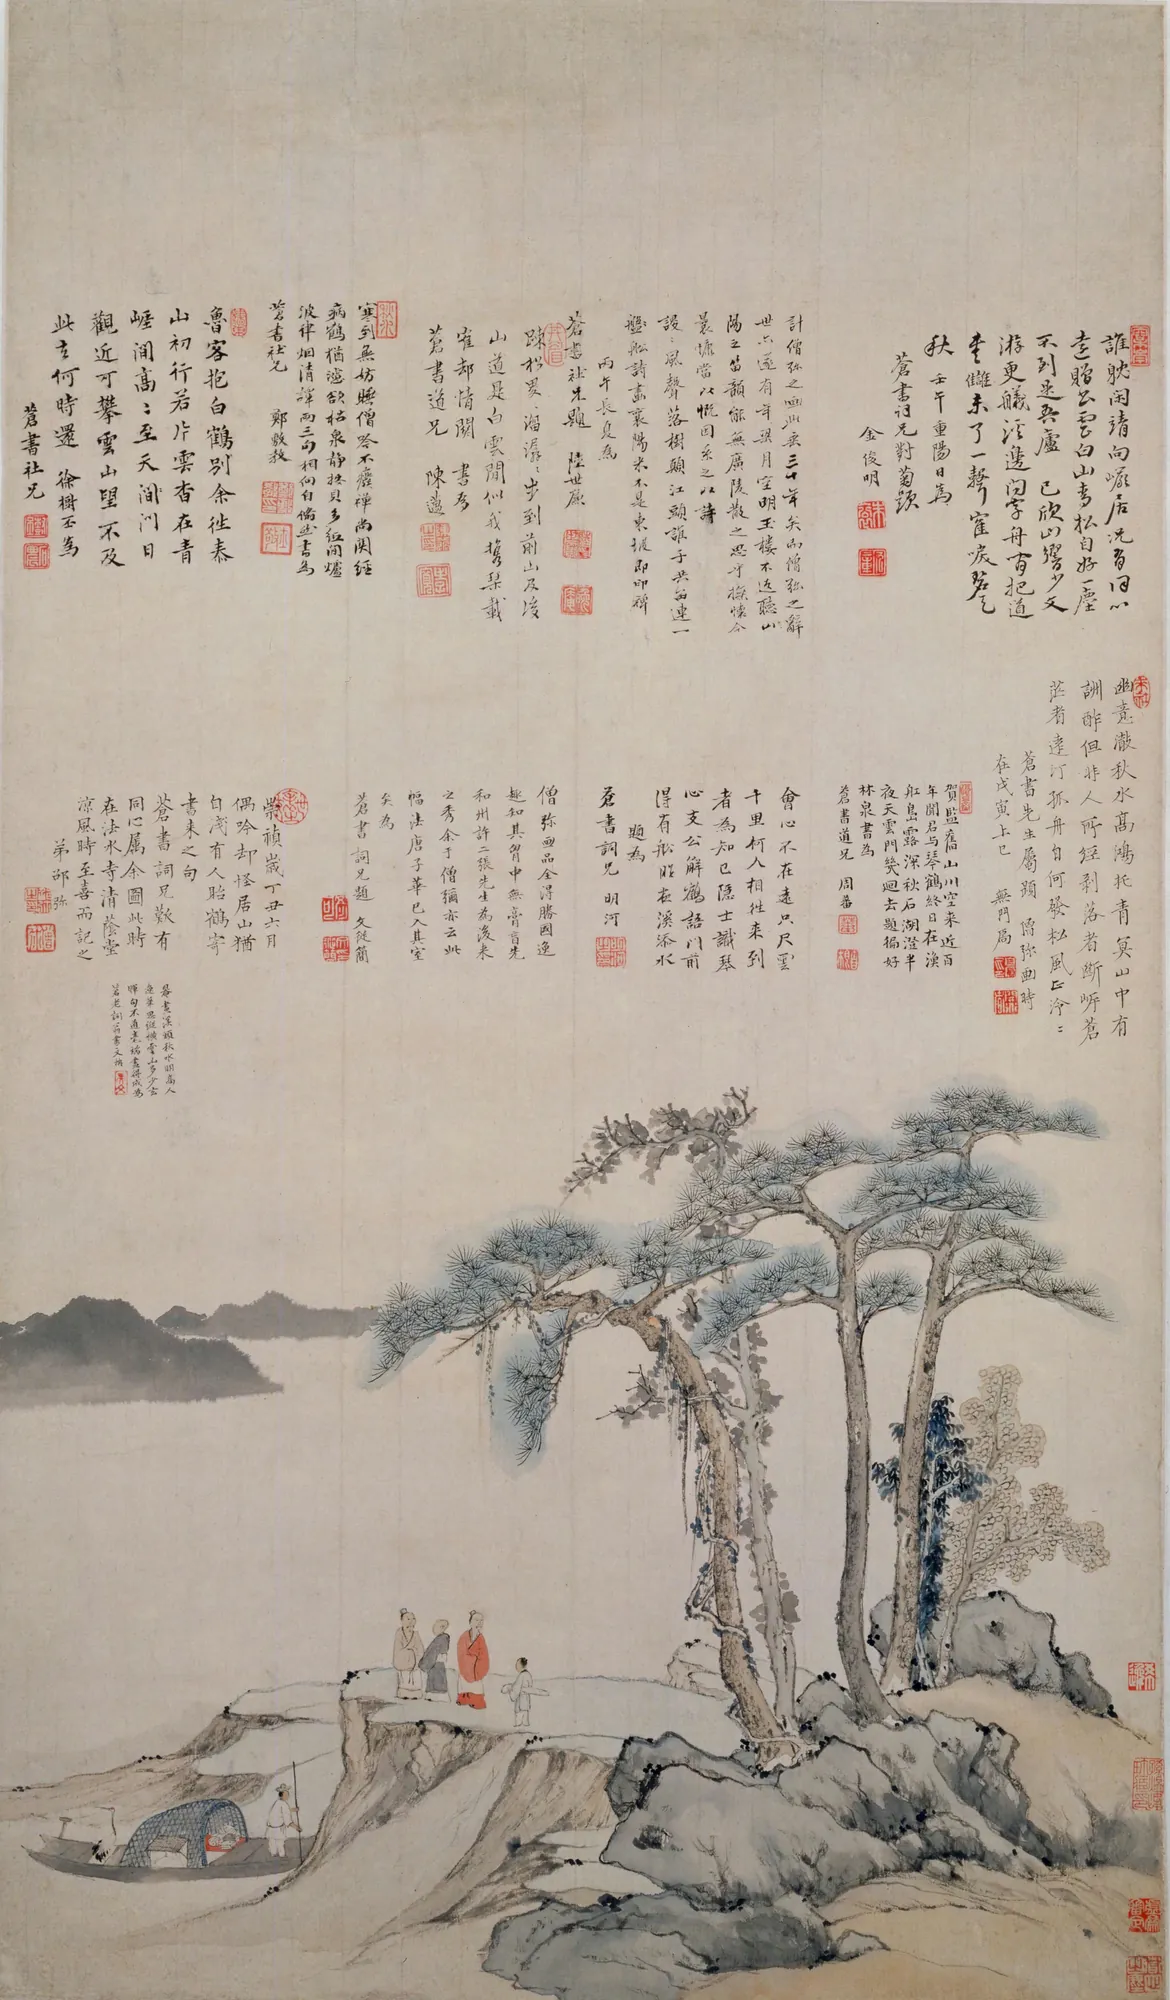 誰耽閑靖向巖居况有同心
遠贈公雲白山青松自好一塵
不到是吾廬　已欣山響少文
游更艤溪邊問字舟百把道
書讎未了一聲寉唳碧天
秋　壬午重陽日為
蒼書詞兄對菊題
金俊明
計僧弥之畫此垂三十年矣而僧弥之辭
世亦遂有年梁月空明玉樓不返聽山
陽之笛韻能無廣陵散之思乎撫懷今
曩慷當以慨因系之以詩
謖謖風聲落樹顛江頭誰子共留連一
艦舩詩畫襄陽米不是東坡即印禪
丙午長夏為
蒼書社兄題　陸世廉
踈松畟畟溜潺潺步到前山及後
山道是白雲閒似我攜琴載
寉却情關　書為
蒼書道兄　陳邁
寒到無妨聽僧吟不廢禪尚閱經
病鶴猶濾飲枯泉静抄貝多紅閒爐
波律烟清譚兩三
蒼書社兄　鄭敷教
魯客抱白鶴別余往泰
山初行若片雲杳在青
崖間高高至天門日
觀近可攀雲山望不及
此去何時還　徐樹丕為
蒼書社兄
幽意澈秋水高鴻托青冥山中有
詶酢但非人所經剥落者斷岸蒼
茫者遠汀孤舟自何發松風正泠泠
蒼書先生屬題　僧弥画時
在戊寅上巳　無門局
賀監舊山川空來近百
年聞君与琴鶴終日在漁
舩島露深秋石湖澄半
夜天雲門幾迴去題徧好
林泉書為
蒼書道兄　周蕃
會心不在遠只尺雲
千里柯人相往來到
者為知己隱士識琴
心支公解鶴語門前
得有舩昨夜溪添水
題為
蒼書詞兄　明河
僧弥画品全得勝國逸
趣知其胷中無膏肓先
和州許二張先生為後來
之秀余于僧彌亦云此
幅法唐子華已入其室
矣為
蒼書詞兄題　文從簡
崇禎歲丁丑六月
偶吟却怪居山猶
自淺有人貽鶴寄
書来之句
蒼書詞兄歎有
同心属余圖此時
在法水寺清蔭堂
涼風時至喜而記之
弟邵弥